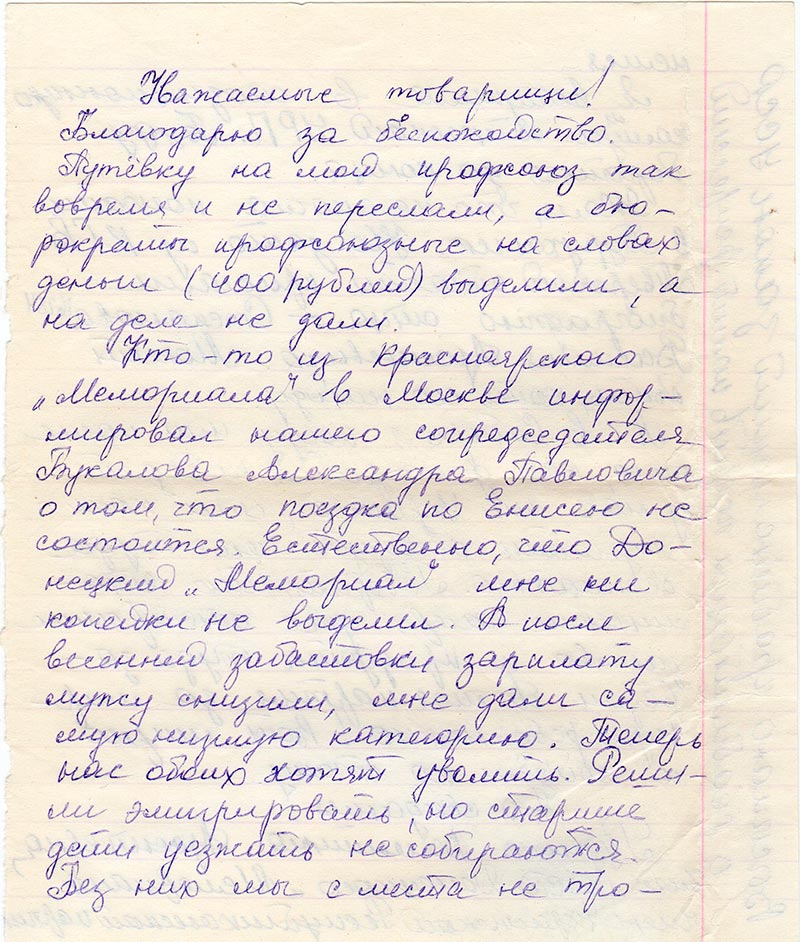 Уважаемые товарищи!
Благодарю за беспокойство.
Путёвку на мой профсоюз так
вовремя и не переслали, а бю-
рократы профсоюзные на словах
деньги (400 рублей) выделили, а
на деле не дали.
Кто-то из Красноярского
„Мемориала" в Москве инфор-
мировал нашего сопредседателя
Букалова Александра Павловича
о том, что поездка по Енисею не
состоится. Естественно, что До-
нецкий „Мемориал" мне ни
копейки не выделил. А после
весенней забастовки зарплату
мужу снизили, мне дали са-
мую низшую категорию. Теперь
нас обоих хотят уволить. Реши-
ли эмигрировать, но старшие
дети уезжать не собираются.
Без них мы с места не тро-